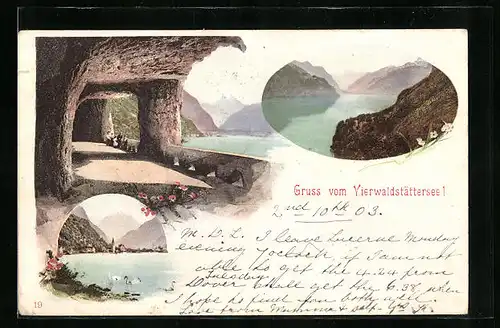 Gruss vom Vierwaldstättersee!
2nd 10th 03.
M. D. L. I leave Lucerne Monday
evening 7 oclock, if I am not
able to get the 4.24 from
Tuesday
Dover shall get the 6.38 when
I hope to find you both well.
Love from Mamma & self.
19